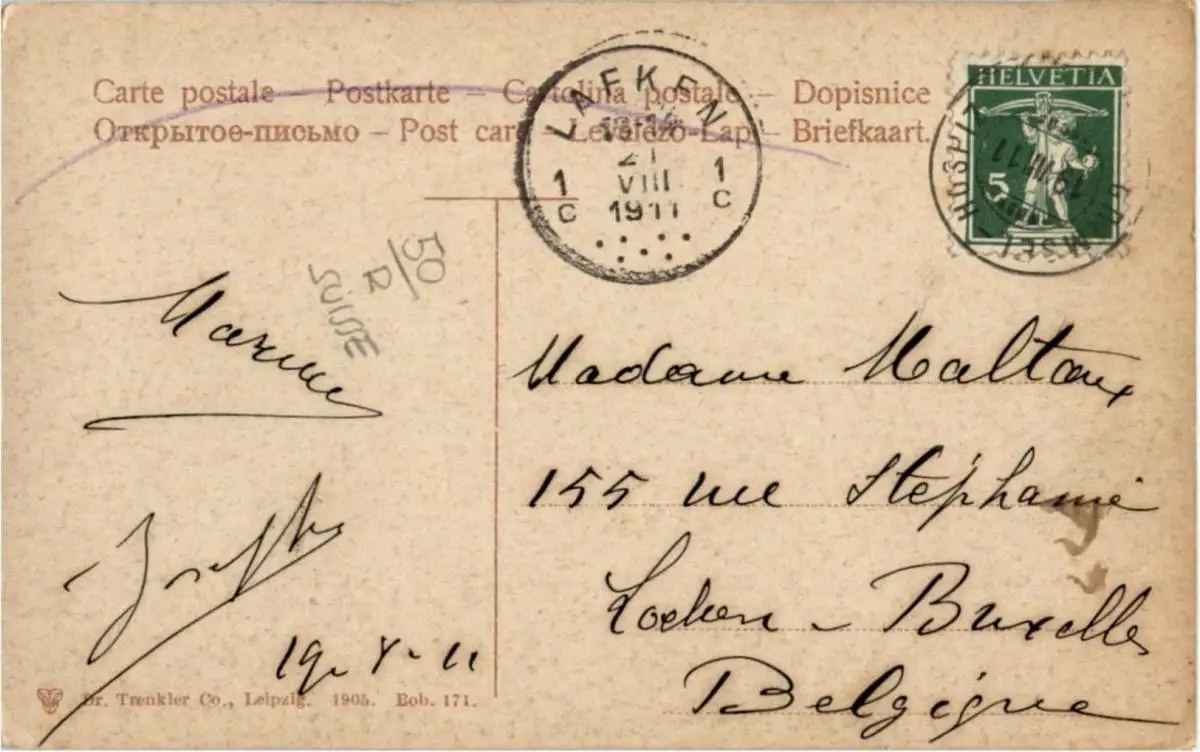 Carte postale – Postkarte – Cartolina postale – Dopisnice
Открытое-письмо – Post card – Levelező-Lap – Briefkaart.
LAEKEN
21
VIII
1911
1 C
1 C
HELVETIA
5
GRIMSEL-HOSPIZ
19.VIII.11
50
R
SUISSE
Madame Maltaux
155 rue Stéphanie
Laeken – Bruxelles
Belgique
Joseph
19-8-11
Dr. Trenkler Co., Leipzig. 1905. Bob. 171.